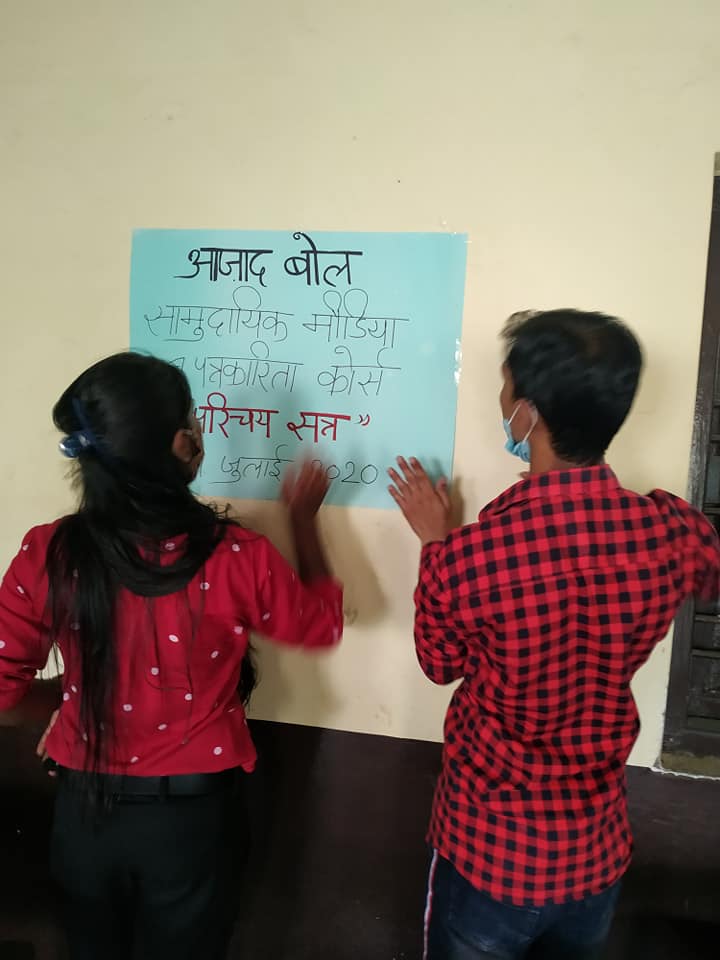 आज़ाद बोल
सामुदायिक मीडिया
पत्रकारिता कोर्स
परिचय सत्र”
जुलाई 2020